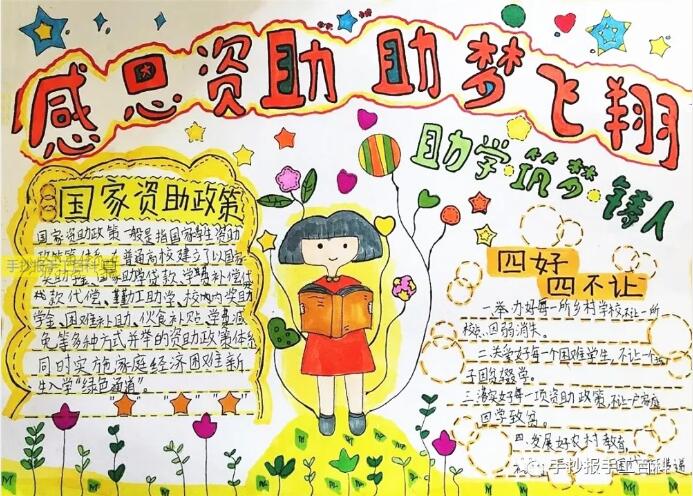 感恩资助 助梦飞翔
助学·筑梦·铸人
国家资助政策
国家资助政策一般是指国家学生资助
政策体系,在普通高校建立了以国家
奖助学金、国家助学贷款、学费补偿贷
款代偿、勤工助学、校内奖助
学金、困难补助、伙食补贴、学费减
免等多种方式并举的资助政策体系
同时实施家庭经济困难新
生入学"绿色通道"。
四好
四不让
一.举办好每一所乡村学校,不让一所
校、因弱消失。
二.关爱好每一个困难学生,不让一个
子因贫辍学。
三.落实好每一项资助政策,不让一户家庭
因学致贫。
四.发展好农村教育,
手抄报手
手抄报手